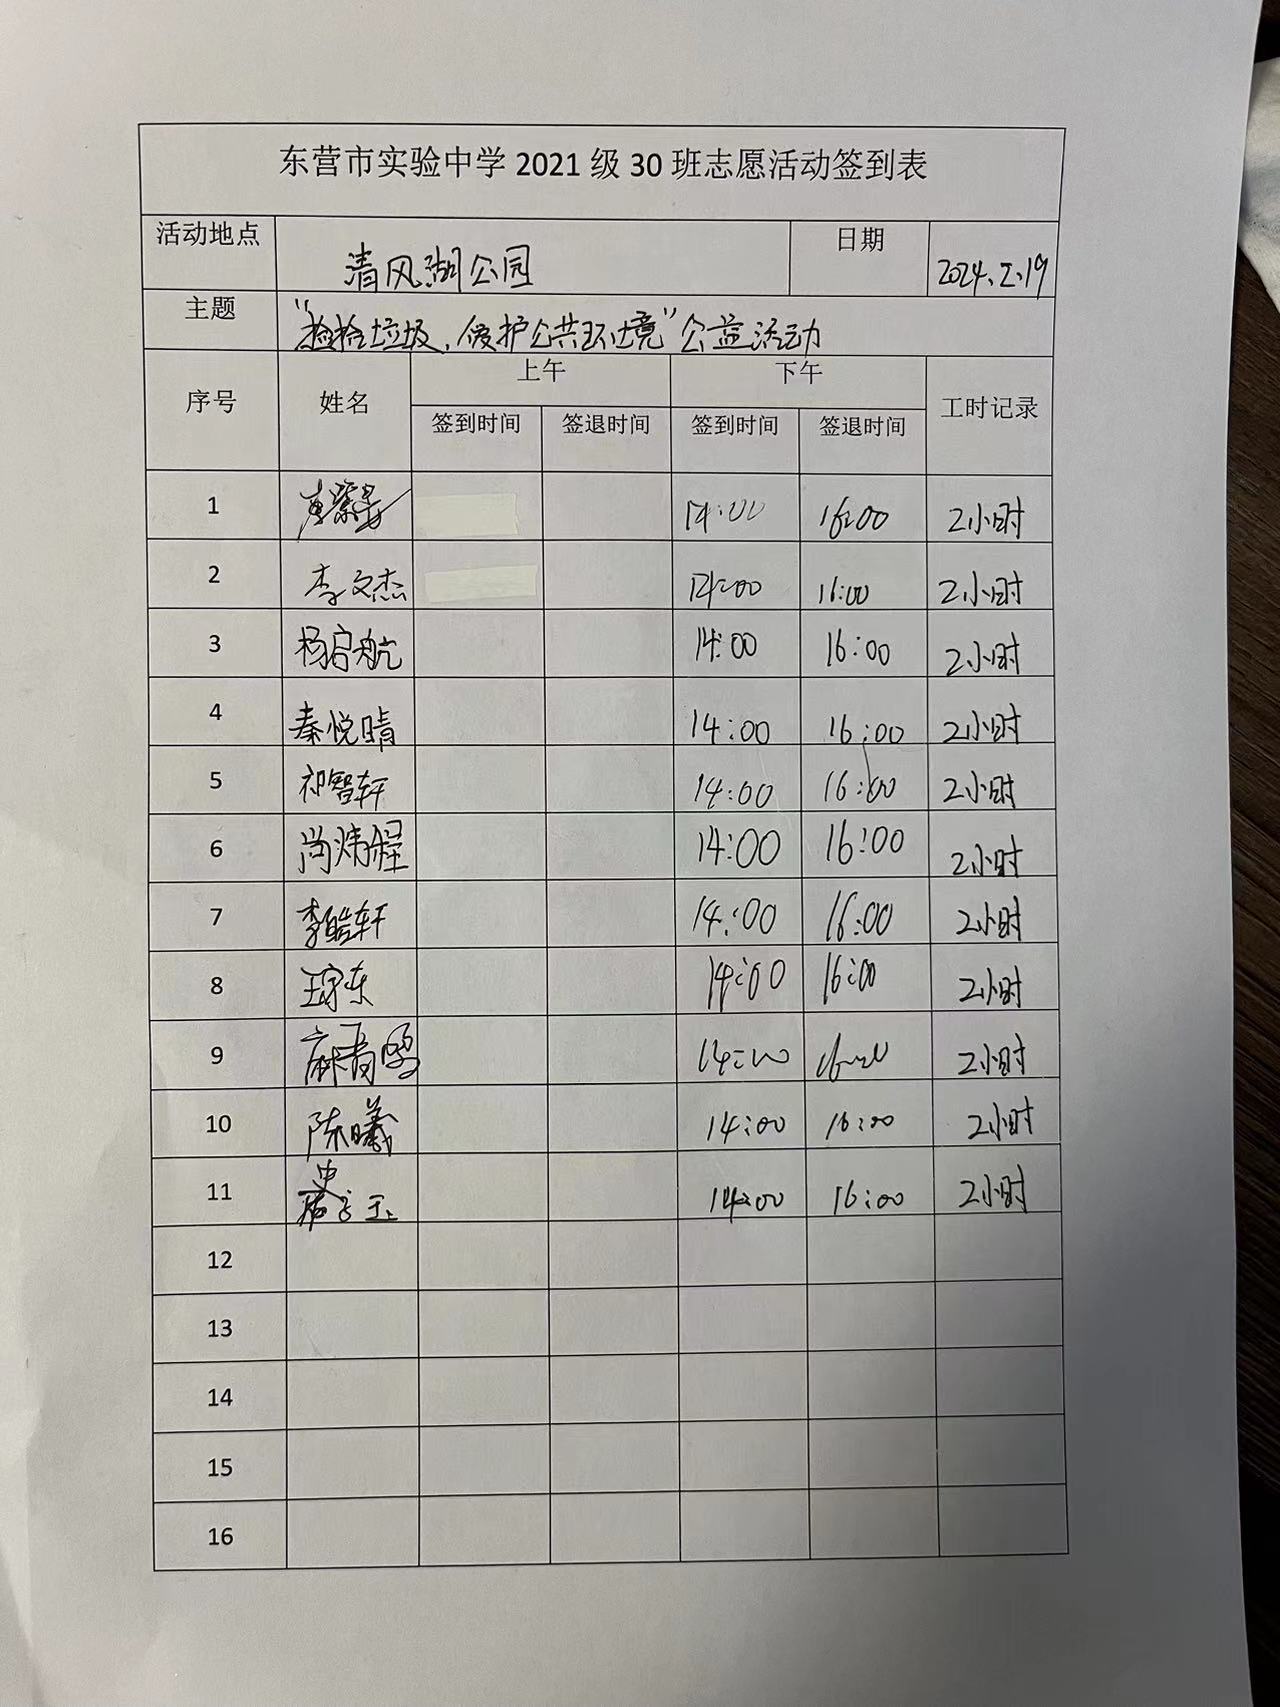 东营市实验中学 2021 级 30 班志愿活动签到表
活动地点 清风湖公园 日期 2024.2.19
主题 "捡拾垃圾,爱护公共环境"公益活动
序号 姓名 上午 下午 工时记录
签到时间 签退时间 签到时间 签退时间
1 14:00 16:00 2小时
2 李文杰 14:00 16:00 2小时
3 杨启航 14:00 16:00 2小时
4 秦悦晴 14:00 16:00 2小时
5 祁智轩 14:00 16:00 2小时
6 尚炜程 14:00 16:00 2小时
7 李皓轩 14:00 16:00 2小时
8 14:00 16:00 2小时
9 14:00 16:00 2小时
10 陈曦 14:00 16:00 2小时
11 14:00 16:00 2小时
12
13
14
15
16